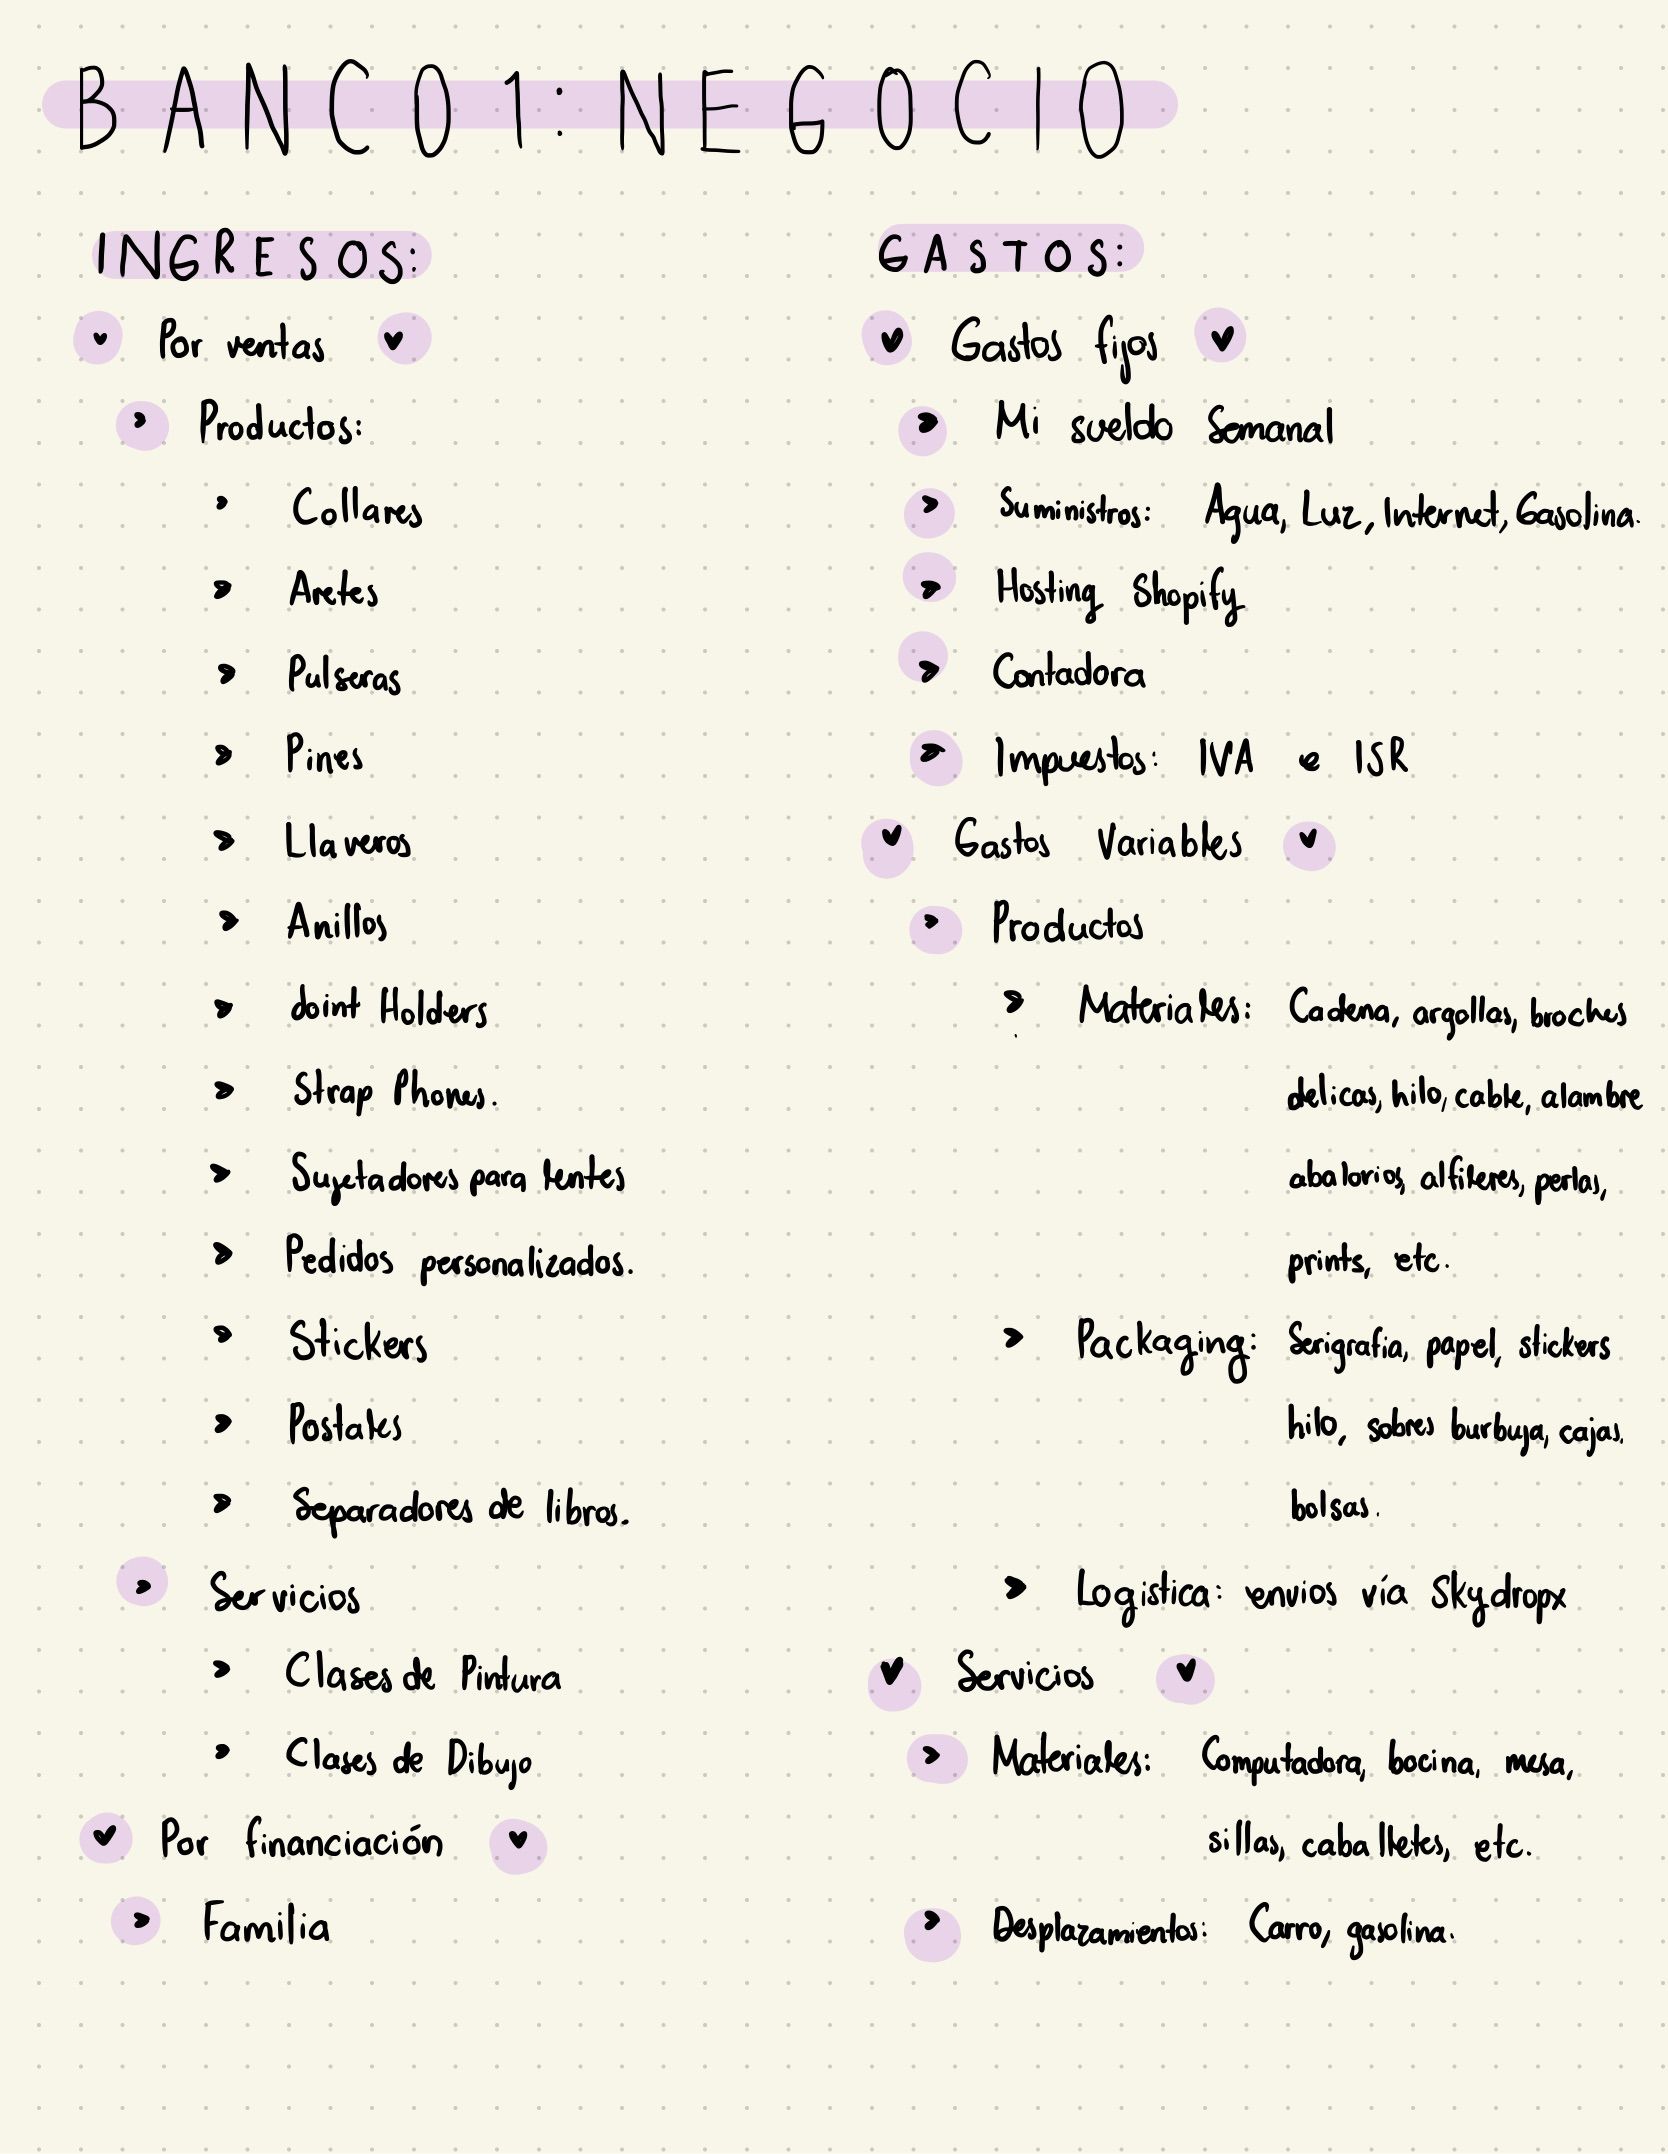 BANCO 1: NEGOCIO
INGRESOS:
Por ventas
Productos:
Collares
Aretes
Pulseras
Pines
Llaveros
Anillos
doint Holders
Strap Phones.
Sujetadores para lentes
Pedidos personalizados.
Stickers
Postales
Separadores de libros.
Servicios
Clases de Pintura
Clases de Dibujo
Por financiación
Familia
GASTOS:
Gastos fijos
Mi sueldo Semanal
Suministros: Agua, Luz, Internet, Gasolina.
Hosting Shopify
Contadora
Impuestos: IVA e ISR
Gastos Variables
Productos
Materiales: Cadena, argollas, broches
delicas, hilo, cable, alambre
abalorios, alfileres, perlas,
prints, etc.
Packaging: Serigrafia, papel, stickers
hilo, sobres burbuja, cajas,
bolsas.
Logistica: envios vía Skydropx
Servicios
Materiales: Computadora, bocina, mesa,
sillas, caballetes, etc.
Desplazamientos: Carro, gasolina.